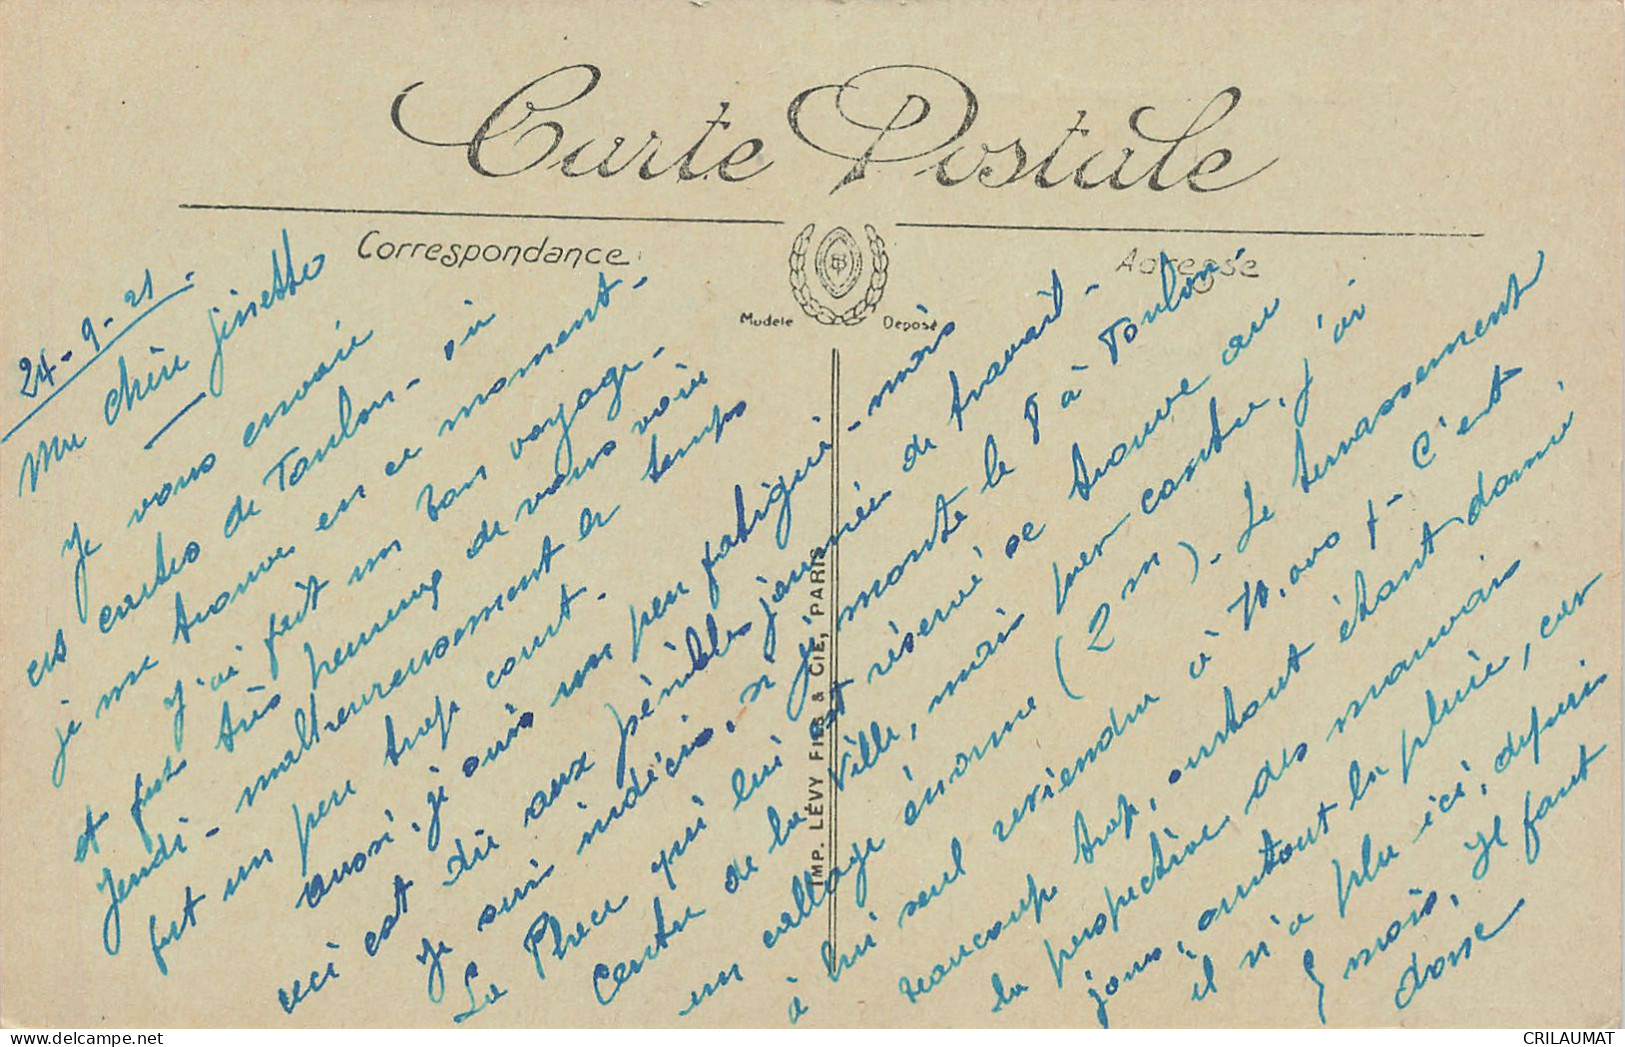 Carte Postale
Correspondance
Adresse
Modèle Déposé
IMP. LÉVY FILS & CIE, PARIS
24-9-21-
Ma chère Ginette
Je vous envoie
ces cartes de Toulon - où
je me trouve en ce moment.
J'ai fait un bon voyage.
et fus très heureux de vous voir
Jeudi - malheureusement le temps
fut un peu trop court.
aussi. je suis un peu fatigué - mais
ceci est dû aux pénibles journées de travail -
Je suis indécis, si je monte le T à Toulon -
La Place qui lui est réservé se trouve au
Centre de la Ville, mais par contre, j'ai
un calage énorme (2 m). Le terrassement
à lui seul reviendra à 70,000 f - C'est
beaucoup trop, surtout étant donné
la perspective des mauvais
jours, surtout la pluie, car
il n'a plu ici, depuis
5 mois, Il faut
donc
CRILAUMAT